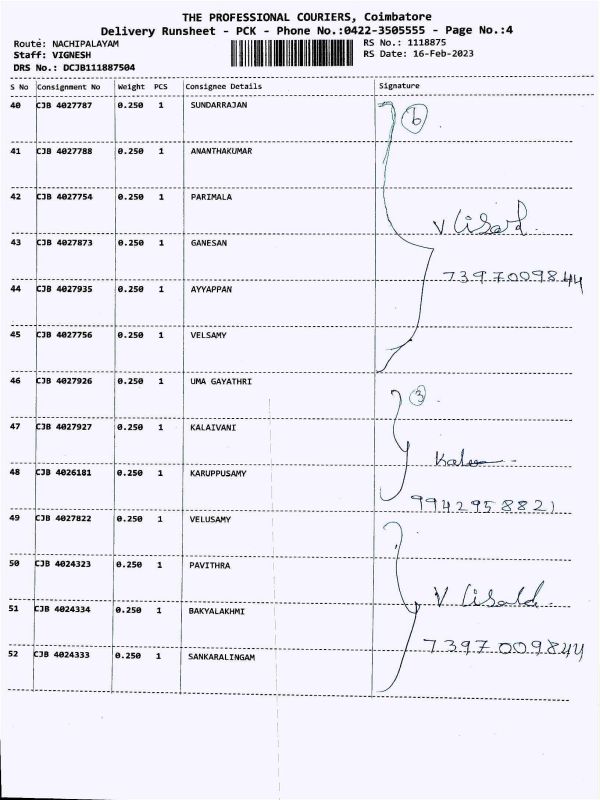 THE PROFESSIONAL COURIERS, Coimbatore
Delivery Runsheet - PCK - Phone No.:0422-3505555 - Page No.:4
Route: NACHIPALAYAM RS No.: 1118875
Staff: VIGNESH RS Date: 16-Feb-2023
DRS No.: DCJB111887504
S No Consignment No Weight PCS Consignee Details Signature
40 CJB 4027787 0.250 1 SUNDARRAJAN 6
41 CJB 4027788 0.250 1 ANANTHAKUMAR
42 CJB 4027754 0.250 1 PARIMALA
V
43 CJB 4027873 0.250 1 GANESAN
7397009844
44 CJB 4027935 0.250 1 AYYAPPAN
45 CJB 4027756 0.250 1 VELSAMY
46 CJB 4027926 0.250 1 UMA GAYATHRI 3
47 CJB 4027927 0.250 1 KALAIVANI
48 CJB 4026181 0.250 1 KARUPPUSAMY
9942958821
49 CJB 4027822 0.250 1 VELUSAMY
50 CJB 4024323 0.250 1 PAVITHRA
V
51 CJB 4024334 0.250 1 BAKYALAKHMI
7397009844
52 CJB 4024333 0.250 1 SANKARALINGAM